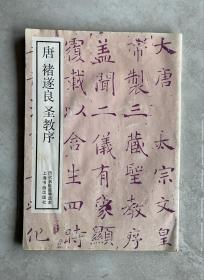 大唐太宗文皇
帝製三藏聖教序
盖聞二儀有象顯
覆載以含生四時
化
唐 褚遂良 圣教序
上海书画出版社